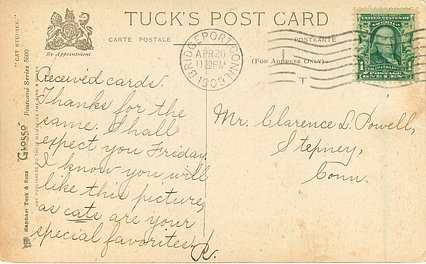 TUCK'S POST CARD
CARTE POSTALE
POSTKARTE
(For Address Only)
By Appointment
"CAT STUDIES."
Postcard Series 5000
"GLOSSO"
Raphael Tuck & Sons
BRIDGEPORT, CONN.
APR 26
11-PM
UNITED STATES OF AMERICA
1
Received cards.
Thanks for the
same. I shall
expect you Friday.
I know you will
like this picture,
as cats are your
special favorites.
R.
Mr. Clarence D. Powell,
Stepney,
Conn.